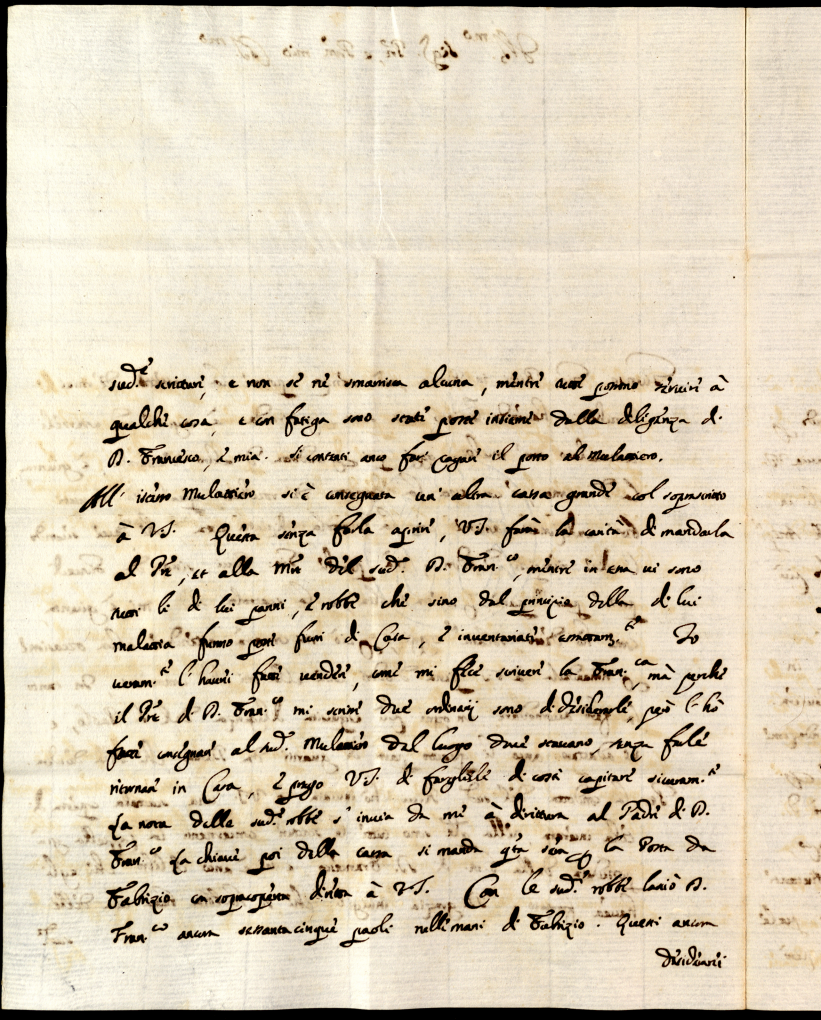 sud.e scritture, e non se ne smarisca alcuna, mentre tutte potrino servire à
qualche cosa, e con fatiga sono state poste insieme dalla diligenza di
D. Francesco, e mia. Si contenti anco far pagare il porto al Mulattiero.
All' istesso Mulattiero si è consegnata un' altra cassa grande col soprascritto
à VS. Questa senza farla aprire, VS. farà la carità di mandarla
al Pre, et alla Mre del sud.o D. Fran.co, mentre in essa vi sono
tutti li di lui panni, e robbe che sino dal principio della di lui
malattia furno poste fuori di Casa, e inventariate Io
veram.te l' haverei fatte vendere, come mi fece scrivere la Fran.ca, mà perche
il Pre di D. Fran.co mi scrive due ordinarij sono di desiderarle però l' hò
fatte consegnare al sud.o Mulattiero dal luogo dove stavano, senza farle
ritornare in Casa, e prego VS. di fargliele di costì capitare sicuram.te
La nota delle sud.e robbe s' invia da me à dirittura al Padre di D.
Fran.co La chiave poi della cassa si manda q̃ta sera p la Posta da
Fabrizio con sopracoperta diretta à VS. Con le sud.e robbe lasciò D.
Fran.co ancora sessantacinque paoli nelli mani di Fabrizio. Questi ancora